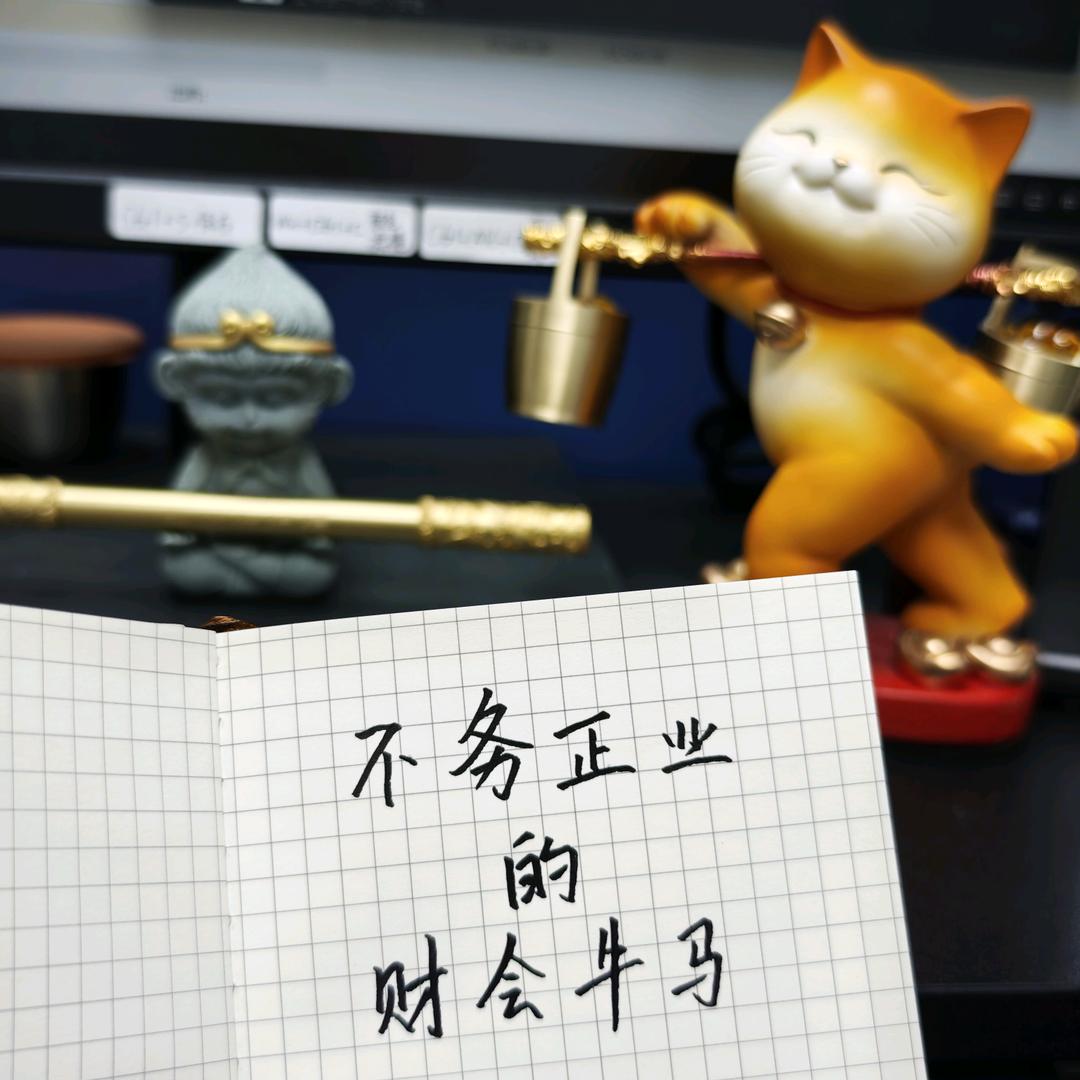 不务正业
的
财会牛马